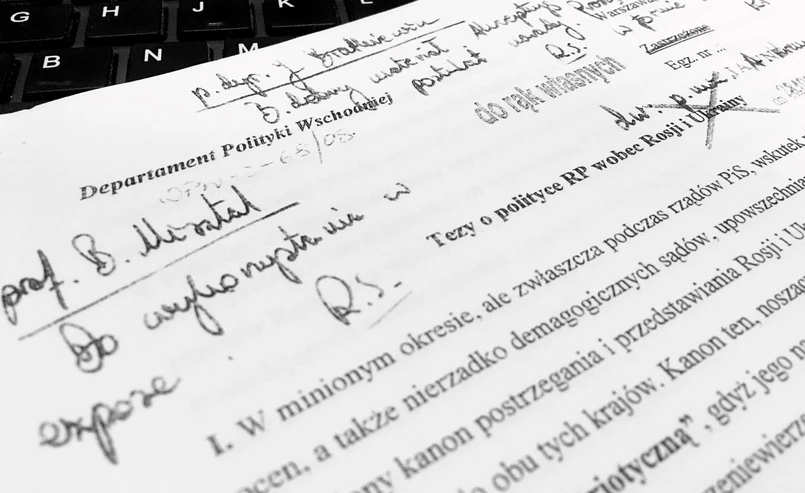 G H J K L
B N M
p. dyr. J. Bratkiewicz
B. dobry materiał
postulat
R.S.
Warszawa
Zastrzeżone
Egz. nr ...
do rąk własnych
Departament Polityki Wschodniej
prof. B. Misztal
Do wykorzystania w
expose.
R.S.
Tezy o polityce RP wobec Rosji i Ukrainy
I. W minionym okresie, ale zwłaszcza podczas rządów PiS, wskutek
ocen, a także nierzadko demagogicznych sądów, upowszechnia
ony kanon postrzegania i przedstawiania Rosji i Uk
do obu tych krajów. Kanon ten, nosząc
riotyczną”, gdyż jego na
zeniewierze